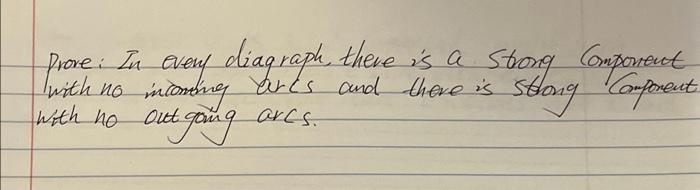 Prove: In every diagraph, there is a strong Component
with no incoming arcs and there is strong Component
with no outgoing arcs.